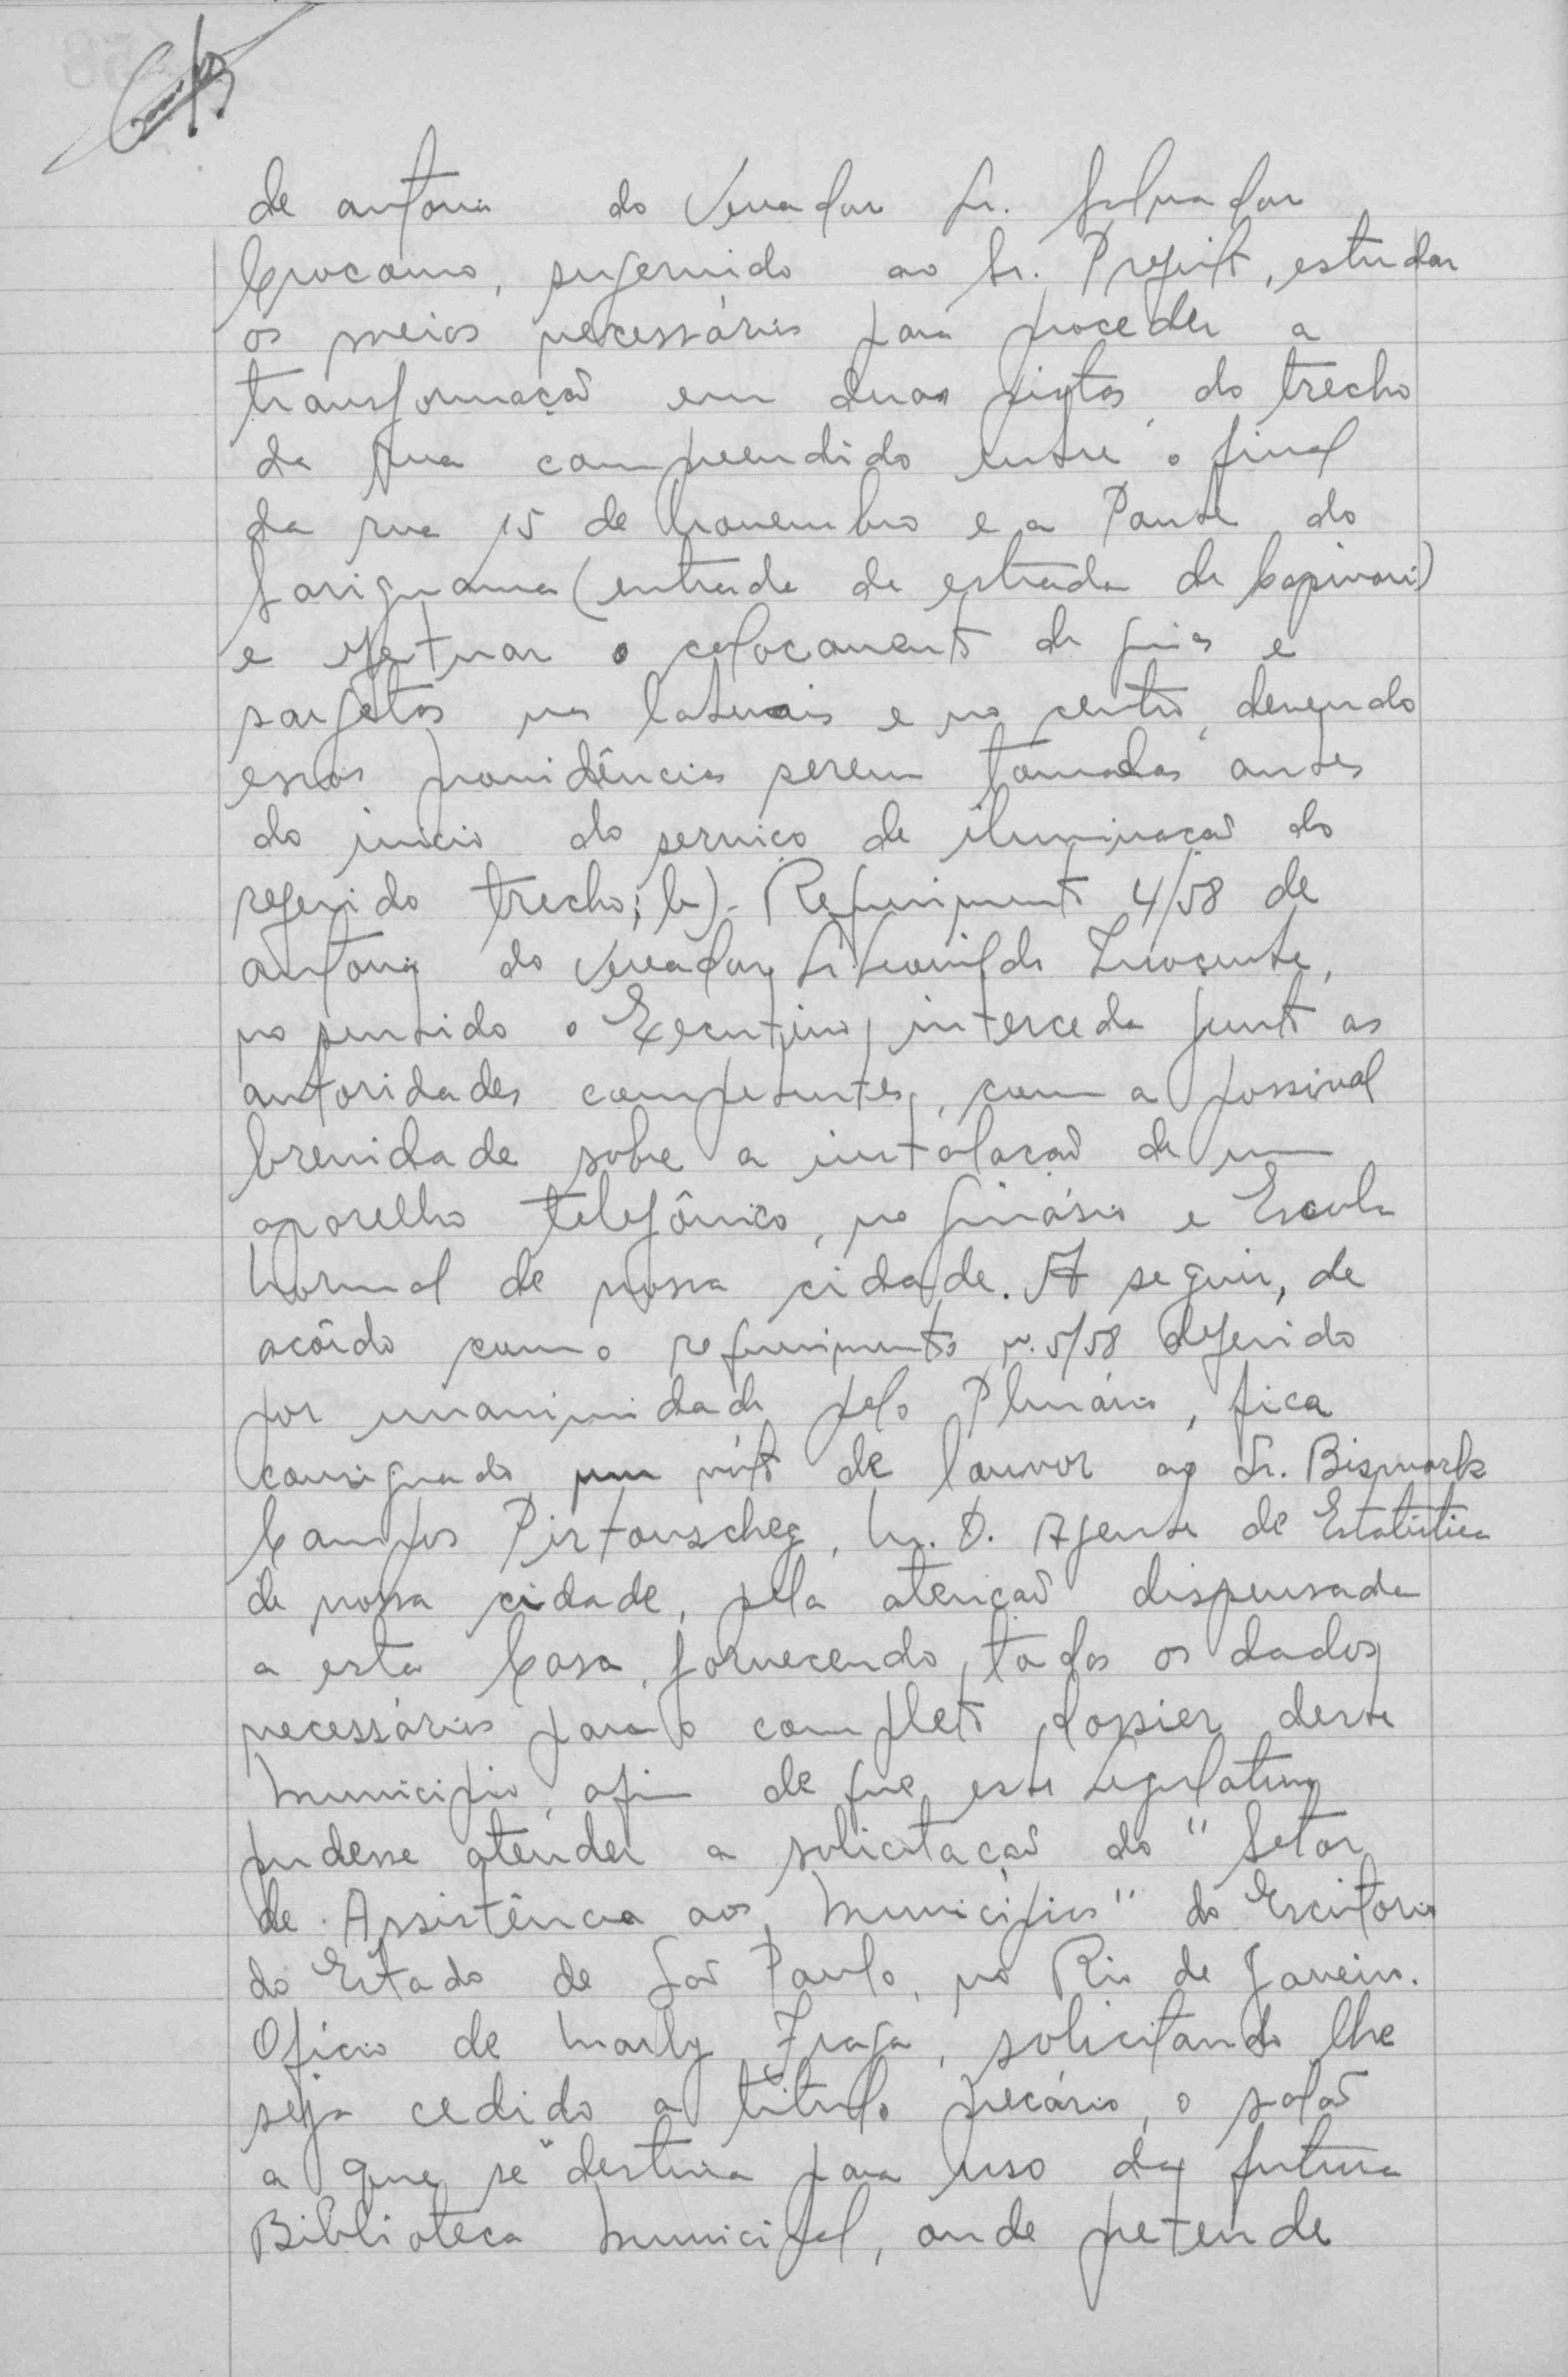 de autoria do Vereador Sr. Salvador
Crocomo, sugerindo ao Sr. Prefeito, estudar
os meios necessários para proceder a
transformação em duas pistas, do trecho
da rua compreendido entre o final
da rua 15 de Novembro e a Ponte do
(entrada da estrada de Capivari)
e efetuar o colocamento de guias e
sargetas nas laterais e no centro, devendo
essas providências serem tomadas antes
do inicio do serviço de iluminação do
referido trecho; b)- Requerimento 4/58 de
autoria do Vereador Sr. Leonildo Inocente,
no sentido o Executivo, interceda junto as
autoridades competentes, com a possivel
brevidade sobre a instalação de um
aparelho telefônico, no ginásio e Escola
Normal de nossa cidade. A seguir, de
acôrdo com o requerimento n. 5/58 deferido
por unanimidade pelo Plenário, fica
consignado um vóto de louvor ao Sr. Bismark
Campos Pirtouscheg, M. D. Agente de Estatística
de nossa cidade, pela atenção dispensada
a esta Casa, fornecendo, todos os dados
necessários para o completo dossier deste
Município, afim de que, este Legislativo
pudesse atender a solicitação do "Setor
de Assistência aos Municípios" do Escritorio
do Estado de São Paulo, no Rio de Janeiro.
Ofício de Marly Fraga, solicitando lhe
seja cedido a título precário, o salão
a que se destina para uso da futura
Biblioteca Municipal, onde pretende